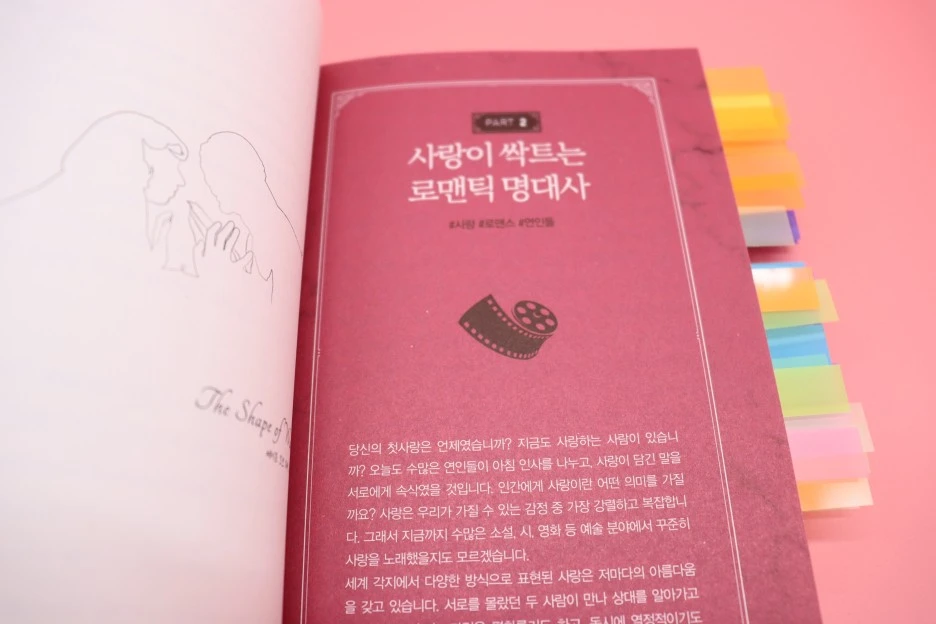 The Shape of
PART 2
사랑이 싹트는
로맨틱 명대사
#사랑 #로맨스 #연인들
당신의 첫사랑은 언제였습니까? 지금도 사랑하는 사람이 있습니
까? 오늘도 수많은 연인들이 아침 인사를 나누고, 사랑이 담긴 말을
서로에게 속삭였을 것입니다. 인간에게 사랑이란 어떤 의미를 가질
까요? 사랑은 우리가 가질 수 있는 감정 중 가장 강렬하고 복잡합니
다. 그래서 지금까지 수많은 소설, 시, 영화 등 예술 분야에서 꾸준히
사랑을 노래했을지도 모르겠습니다.
세계 각지에서 다양한 방식으로 표현된 사랑은 저마다의 아름다움
을 갖고 있습니다. 서로를 몰랐던 두 사람이 만나 상대를 알아가고
동시에 열정적이기도